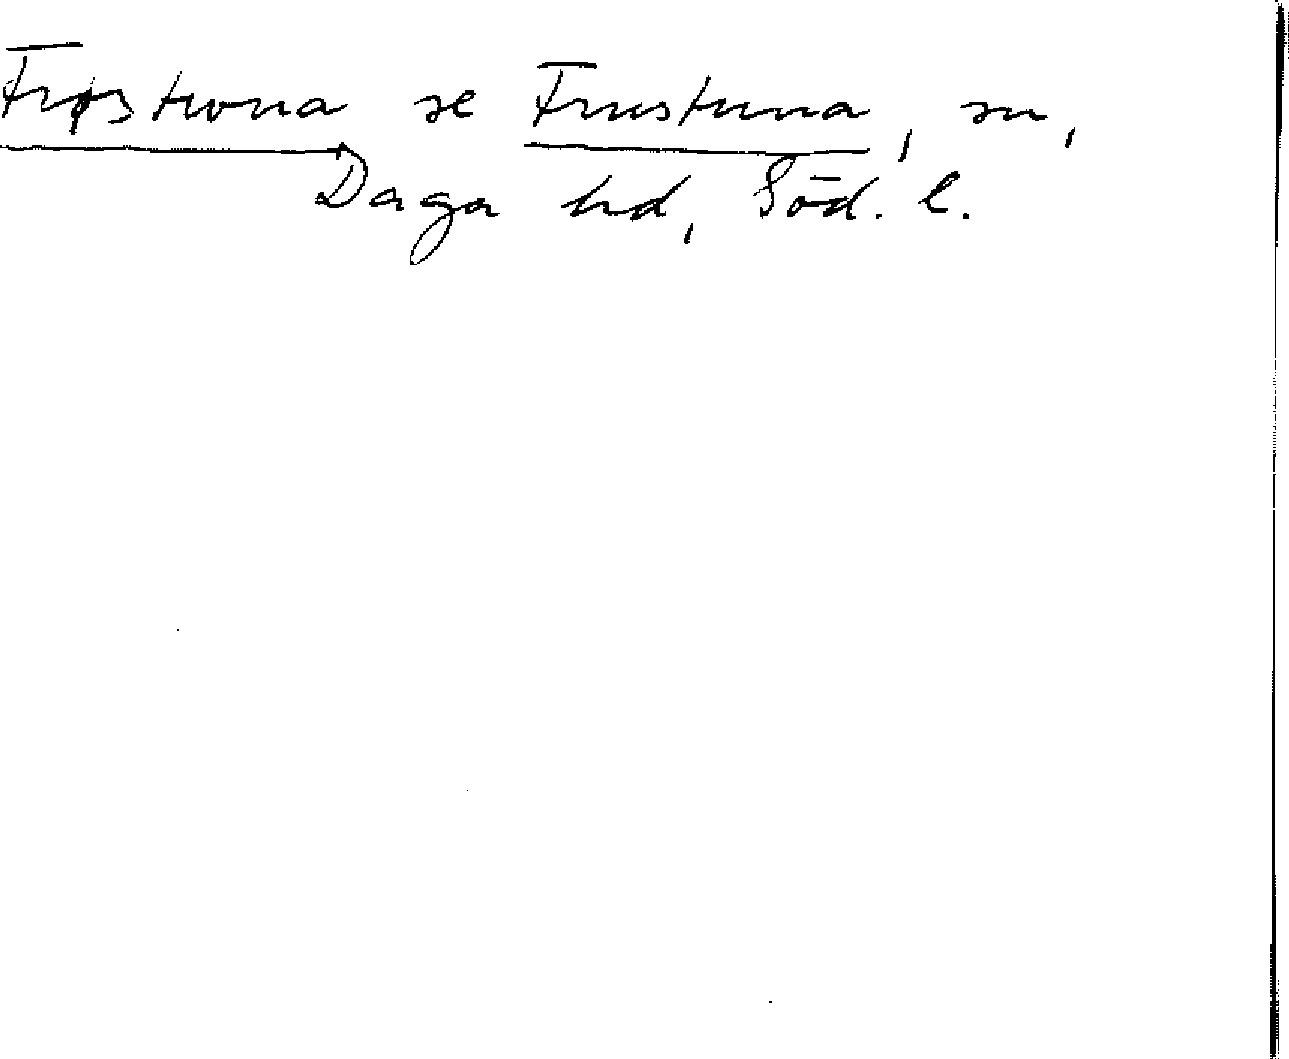 Frøstwna se Frustuna, sn,
Daga hd, Söd. l.